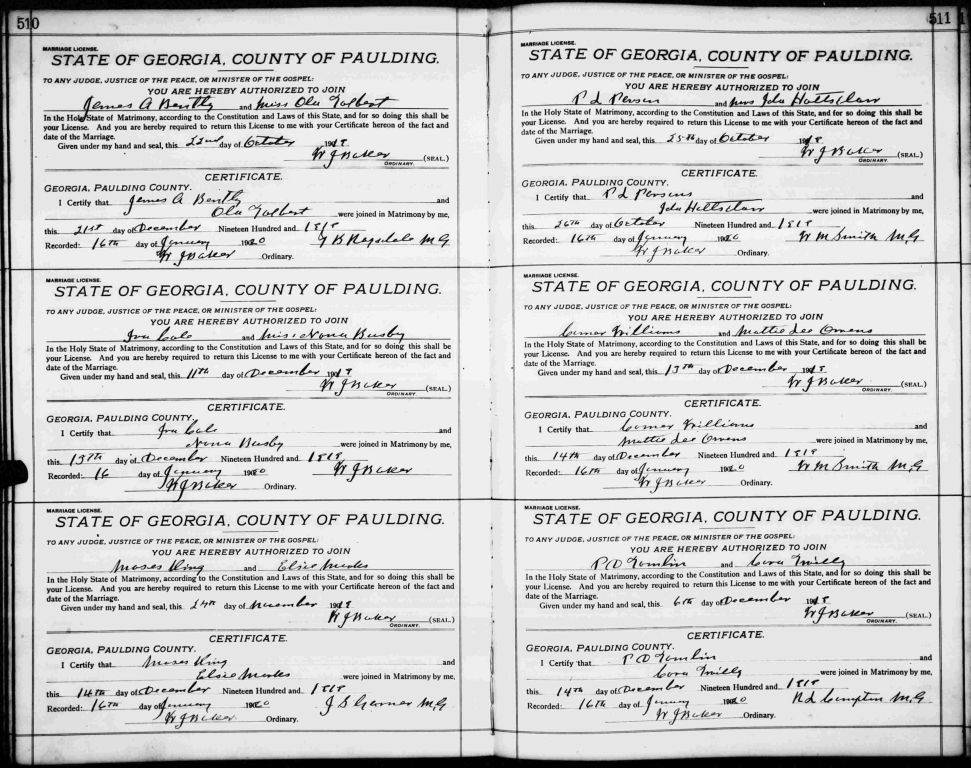 510
MARRIAGE LICENSE.
STATE OF GEORGIA, COUNTY OF PAULDING.
TO ANY JUDGE, JUSTICE OF THE PEACE, OR MINISTER OF THE GOSPEL:
YOU ARE HEREBY AUTHORIZED TO JOIN
James A Bently and Miss Ola Tolbert
In the Holy State of Matrimony, according to the Constitution and Laws of this State, and for so doing this shall be
your License. And you are hereby required to return this License to me with your Certificate hereon of the fact and
date of the Marriage.
Given under my hand and seal, this 22nd day of October
W J Baker (SEAL.)
ORDINARY.
CERTIFICATE.
GEORGIA, PAULDING COUNTY.
I Certify that James A Bently and
Ola Tolbert were joined in Matrimony by me,
this 21st day of December Nineteen Hundred and
Recorded: 16th day of January M G
W J Baker Ordinary.
MARRIAGE LICENSE.
STATE OF GEORGIA, COUNTY OF PAULDING.
TO ANY JUDGE, JUSTICE OF THE PEACE, OR MINISTER OF THE GOSPEL:
YOU ARE HEREBY AUTHORIZED TO JOIN
Ira Cole and Miss Nona Busby
In the Holy State of Matrimony, according to the Constitution and Laws of this State, and for so doing this shall be
your License. And you are hereby required to return this License to me with your Certificate hereon of the fact and
date of the Marriage.
Given under my hand and seal, this 11th day of December
W J Baker (SEAL.)
ORDINARY.
CERTIFICATE.
GEORGIA, PAULDING COUNTY.
I Certify that Ira Cole and
Nona Busby were joined in Matrimony by me,
this 13th day of December Nineteen Hundred and
Recorded: 16 day of January W J Baker
W J Baker Ordinary.
MARRIAGE LICENSE.
STATE OF GEORGIA, COUNTY OF PAULDING.
TO ANY JUDGE, JUSTICE OF THE PEACE, OR MINISTER OF THE GOSPEL:
YOU ARE HEREBY AUTHORIZED TO JOIN
Moses King and Elsie Marks
In the Holy State of Matrimony, according to the Constitution and Laws of this State, and for so doing this shall be
your License. And you are hereby required to return this License to me with your Certificate hereon of the fact and
date of the Marriage.
Given under my hand and seal, this 24th day of November
W J Baker (SEAL.)
ORDINARY.
CERTIFICATE.
GEORGIA, PAULDING COUNTY.
I Certify that Moses King and
Elsie Marks were joined in Matrimony by me,
this 14th day of December Nineteen Hundred and
Recorded: 16th day of January J S Garner M G
W J Baker Ordinary.
511
MARRIAGE LICENSE.
STATE OF GEORGIA, COUNTY OF PAULDING.
TO ANY JUDGE, JUSTICE OF THE PEACE, OR MINISTER OF THE GOSPEL:
YOU ARE HEREBY AUTHORIZED TO JOIN
P L Person and Mrs Ida Holtsclaw
In the Holy State of Matrimony, according to the Constitution and Laws of this State, and for so doing this shall be
your License. And you are hereby required to return this License to me with your Certificate hereon of the fact and
date of the Marriage.
Given under my hand and seal, this 25th day of October
W J Baker (SEAL.)
ORDINARY.
CERTIFICATE.
GEORGIA, PAULDING COUNTY.
I Certify that P L Persons and
Ida Holtsclaw were joined in Matrimony by me,
this 26th day of October Nineteen Hundred and
Recorded: 16th day of January W M Smith M G
W J Baker Ordinary.
MARRIAGE LICENSE.
STATE OF GEORGIA, COUNTY OF PAULDING.
TO ANY JUDGE, JUSTICE OF THE PEACE, OR MINISTER OF THE GOSPEL:
YOU ARE HEREBY AUTHORIZED TO JOIN
Comer Williams and Mattie Lee Owens
In the Holy State of Matrimony, according to the Constitution and Laws of this State, and for so doing this shall be
your License. And you are hereby required to return this License to me with your Certificate hereon of the fact and
date of the Marriage.
Given under my hand and seal, this 13th day of December
W J Baker (SEAL.)
ORDINARY.
CERTIFICATE.
GEORGIA, PAULDING COUNTY.
I Certify that Comer Williams and
Mattie Lee Owens were joined in Matrimony by me,
this 14th day of December Nineteen Hundred and
Recorded: 16th day of January W M Smith M G
W J Baker Ordinary.
MARRIAGE LICENSE.
STATE OF GEORGIA, COUNTY OF PAULDING.
TO ANY JUDGE, JUSTICE OF THE PEACE, OR MINISTER OF THE GOSPEL:
YOU ARE HEREBY AUTHORIZED TO JOIN
P D Tomlin and Cora
In the Holy State of Matrimony, according to the Constitution and Laws of this State, and for so doing this shall be
your License. And you are hereby required to return this License to me with your Certificate hereon of the fact and
date of the Marriage.
Given under my hand and seal, this 6th day of December
W J Baker (SEAL.)
ORDINARY.
CERTIFICATE.
GEORGIA, PAULDING COUNTY.
I Certify that P D Tomlin and
Cora were joined in Matrimony by me,
this 14th day of December Nineteen Hundred and
Recorded: 16th day of January M G
W J Baker Ordinary.